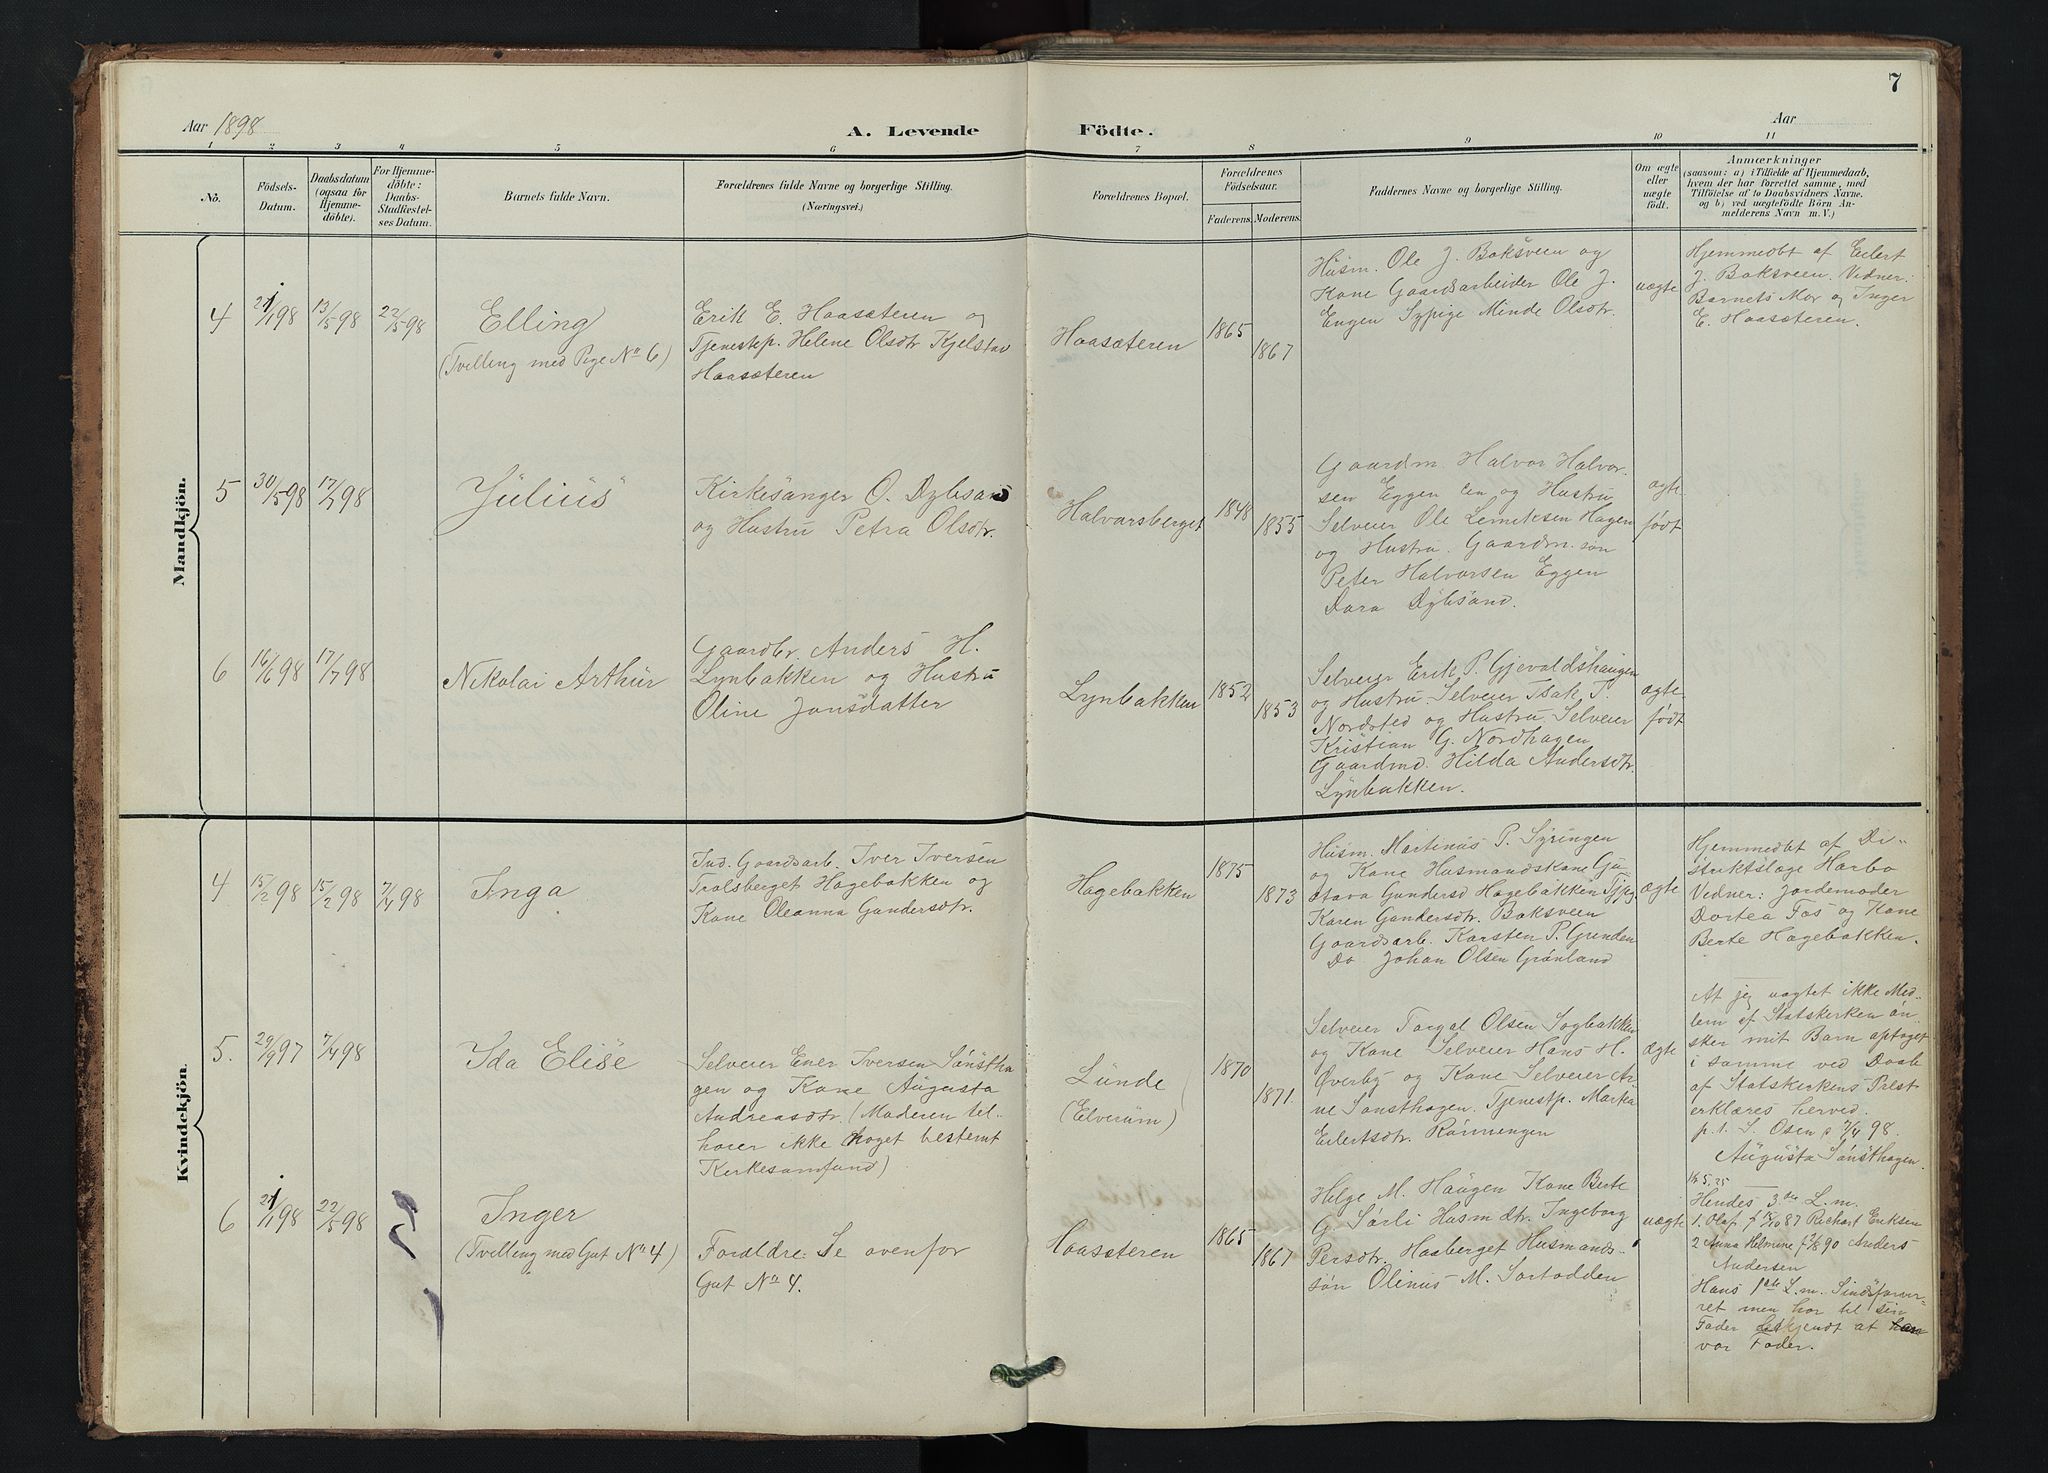 7
Aar 1898
A. Levende
Födte.
Aar
1 2 3 4 5 6 7 8 9 10 11
No.
Födsels-
Datum.
Daabsdatum
(ogsaa for
Hjemme-
döbte).
For Hjemme-
döbte:
Daabs-
Stadfæstel-
ses Datum.
Barnets fulde Navn.
Forældrenes fulde Navne og borgerlige Stilling.
(Næringsvei.)
Forældrenes Bopæl.
Forældrenes
Födselsaar.
Faderens.
Moderens.
Faddernes Navne og borgerlige Stilling.
Om ægte
eller
uægte
födt.
Anmærkninger
(saasom: a) i Tilfælde af Hjemmedaab,
hvem der har forrettet samme, med
Tilföielse af to Daabsvidners Navne.
og b) ved uægtefödte Börn An-
melderens Navn m. V.)
Mandkjön.
4
21/1 98
13/5 98
22/5 98
Elling
(Tvilling med Pige No 6)
Erik E. Haasæteren og
Tjenestp. Helene Olsdtr Kjelstav
Haasæteren
Haasæteren
1865
1867
Husm. Ole J. Baksveen og
Kone Gaardsarbeider Ole J.
Engen Sypige Minde Olsdtr.
uægte
Hjemmedbt af Eilert
J. Baksveen. Vidner:
Barnets Mor og Inger
E. Haasæteren.
5
30/5 98
17/7 98
Julius
Kirkesanger O. Dybsand
og Hustru Petra Olsdtr.
Halvarsberget
1848
1855
Gaardm. Halvor Halvor-
sen Eggen og Hustru
Selveier Ole Hagen
og Hustru. Gaardm. søn
Peter Halvorsen Eggen
Dara Dybsand.
ægte
født
6
16/6 98
17/7 98
Nikolai Arthur
Gaardbr. Anders H.
Lynbakken og Hustru
Oline Jonsdatter
Lynbakken
1852
1853
Selveier Erik P. Gjevaldshaugen
og Hustru. Selveier Isak T.
Nordsted og Hustru. Selveier
Kristian G. Nordhagen
Gaardmd. Hilda Andersdtr.
Lynbakken.
ægte
født
Kvindekjön.
4
15/2 98
15/2 98
7/4 98
Inga
Ind. Gaardsarb. Iver Iversen
Trolsberget Hagebakken og
Kone Oleanna Gundersdtr.
Hagebakken
1875
1873
Husm. Martinus P. Syringen
og Kone Husmandskone Gu-
stava Gundersd Hagebakken
Karen Gundersdtr. Baksveen
Gaardsarb. Karsten P. Grenden
Do Johan Olsen Grønland
ægte
Hjemmedbt af Di-
striktslæge Harbo
Vidner: Jordemoder
Dortea Fos og Kone
Berte Hagebakken.
5.
29/9 97
7/4 98
Ida Elise
Selveier Ener Iversen Sønstha
gen og Kone Augusta
Andreasdtr. (Moderen til-
hører ikke noget bestemt
Kirkesamfund)
Lunde
(Elverum)
1870
1871.
Selveier Torgal Olsen Sogbakken
og Kone Selveier Hans H.
Øverby og Kone Selveier Ar-
ne Sønsthagen. Tjenestp. Marka
Eilertsdtr. Rønningen
ægte
At jeg uagtet ikke Med-
lem af Statskirken øn-
sker mit Barn optaget
i samme ved Daab
af Statskirkens Prest
erklæres herved.
p.t. S. Osen 7/4 98.
Augusta Sønsthagen.
6
21/1 98
22/5 98
Inger
(Tvilling med Gut No 4)
Forældre: Se ovenfor
Gut No 4.
Haasæteren
1865
1867
Helge M. Haugen Kone Berte
G. Sørli Husmdtr. Ingeborg
Persdtr. Haaberget Husmands-
søn Olinus M. Sortodden
uægte
Hendes 3die L.m.
1. Olaf f 87 Richart Eriksen
2 Anna Helmine f 90 Anders
Andersen
Hans 1ste L.m. Sindsforvir-
ret men har til sin
Fader bekjendt at han
var Fader.